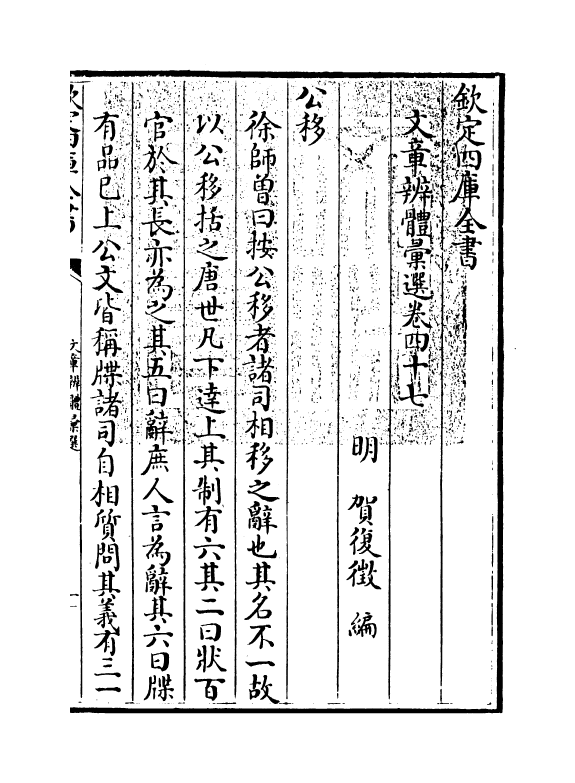 欽定四庫全書
文章辨體彙選卷四十七
明 賀復徵 編
公移
徐師曾曰按公移者諸司相移之辭也其名不一故
以公移括之唐世凡下逹上其制有六其二曰狀百
官於其長亦為之其五曰辭庶人言為辭其六曰牒
有品已上公文皆稱牒諸司自相質問其義有三一
欽定四庫全書
文章辨體彙選